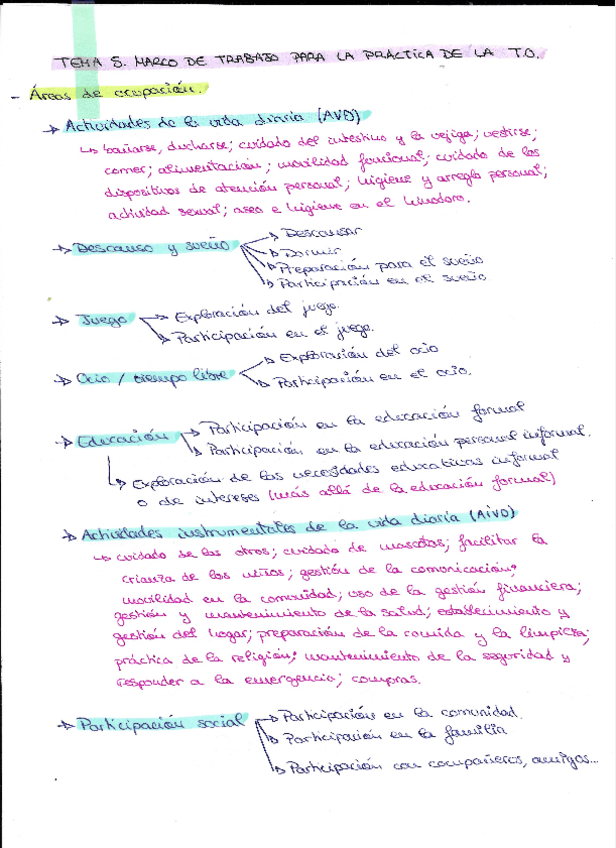 TEMA 5. MARCO DE TRABAJO PARA LA PRÁCTICA DE LA T.O.
- Áreas de ocupación.
→ Actividades de la vida diaria (AVD)
↳ bañarse, ducharse; cuidado del intestino y la vejiga; vestirse;
comer; alimentación; movilidad funcional; cuidado de los
dispositivos de atención personal; higiene y arreglo personal;
actividad sexual; aseo e higiene en el inodoro.
→ Descanso y sueño
→ Descansar
→ Dormir
→ Preparación para el sueño
→ Participación en el sueño
→ Juego
→ Exploración del juego.
→ Participación en el juego.
→ Ocio / tiempo libre
→ Exploración del ocio
→ Participación en el ocio.
→ Educación
→ Participación en la educación formal
→ Participación en la educación personal informal.
↳ Exploración de las necesidades educativas informal
o de intereses (más allá de la educación formal)
→ Actividades instrumentales de la vida diaria (AIVD)
↳ cuidado de los otros; cuidado de mascotas; facilitar la
crianza de los niños; gestión de la comunicación;
movilidad en la comunidad; uso de la gestión financiera;
gestión y mantenimiento de la salud; establecimiento y
gestión del hogar; preparación de la comida y la limpieza;
práctica de la religión; mantenimiento de la seguridad y
responder a la emergencia; compras.
→ Participación social
→ Participación en la comunidad.
→ Participación en la familia
→ Participación con compañeros, amigos...